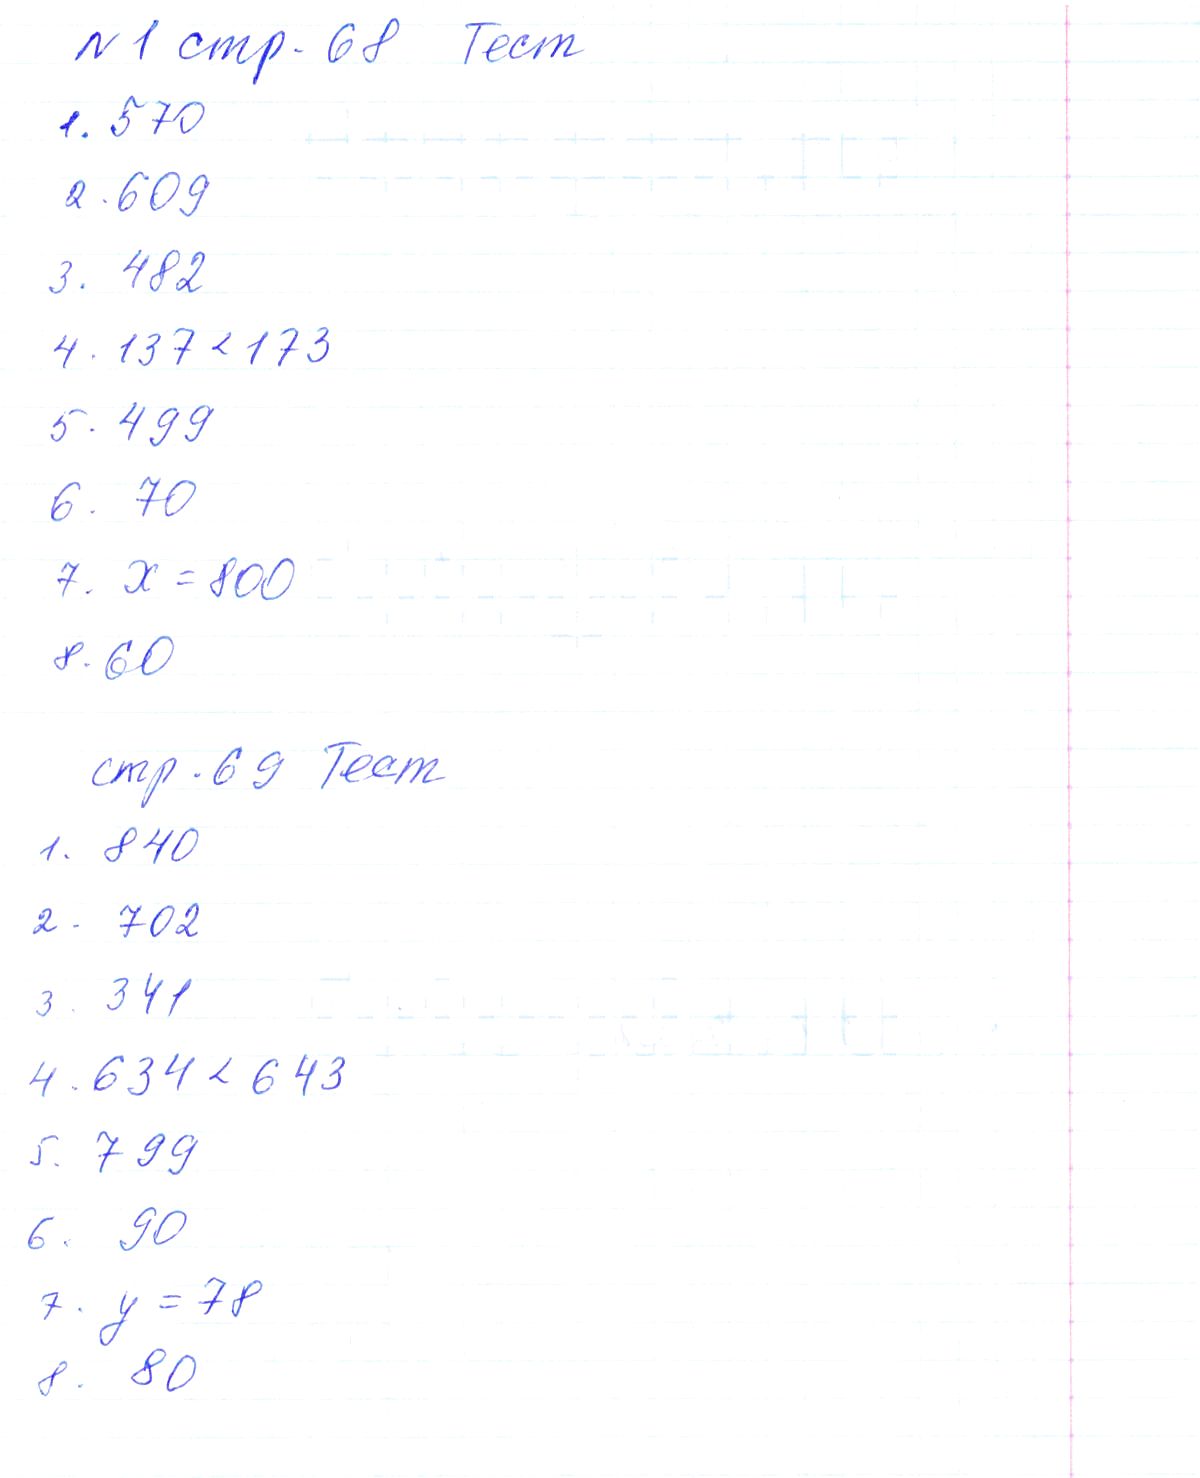 №1 стр. 68 Тест
1. 570
2. 609
3. 482
4. 137 < 173
5. 499
6. 70
7. x = 800
8. 60
стр. 69 Тест
1. 840
2. 702
3. 341
4. 634 < 643
5. 799
6. 90
7. y = 78
8. 80